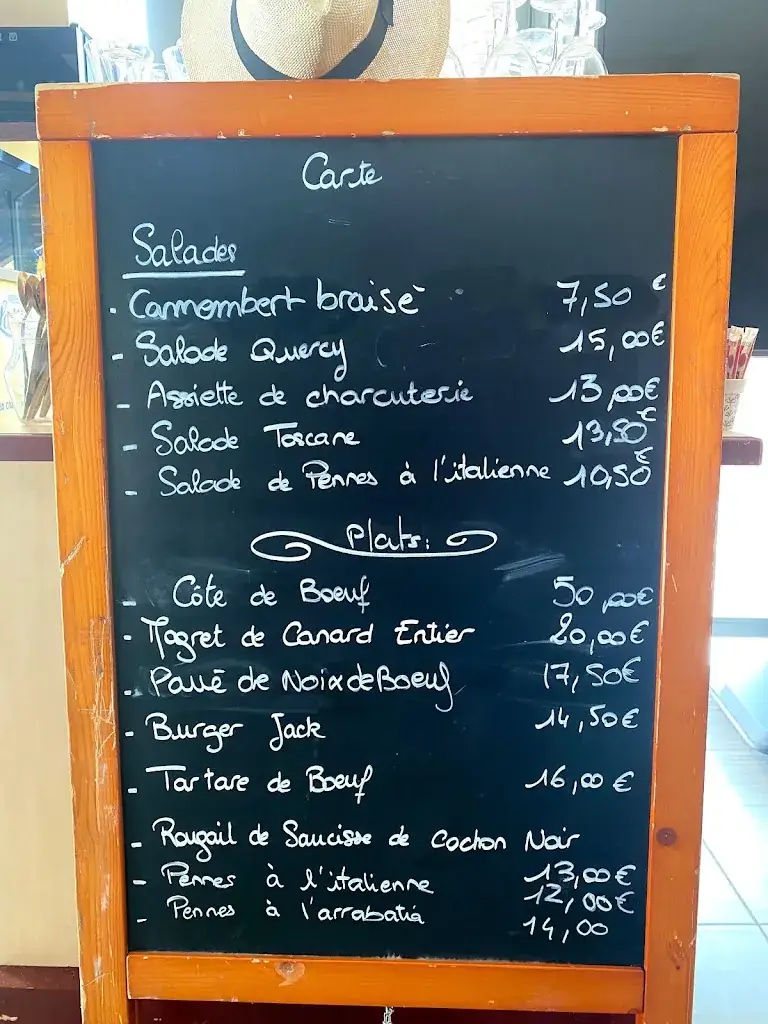 Carte
Salades
- Camembert braisé 7,50 €
- Salade Quercy 15,00€
- Assiette de charcuterie 13,00€
- Salade Toscane 13,50€
- Salade de Pennes à l'italienne 10,50€
Plats:
- Côte de Boeuf 50,00€
- Magret de Canard Entier 20,00€
- Pavé de Noix de Boeuf 17,50€
- Burger Jack 14,50€
- Tartare de Boeuf 16,00 €
- Rougail de Saucisse de Cochon Noir
- Pennes à l'italienne 13,00€
12,00€
- Pennes à l'arrabatia 14,00